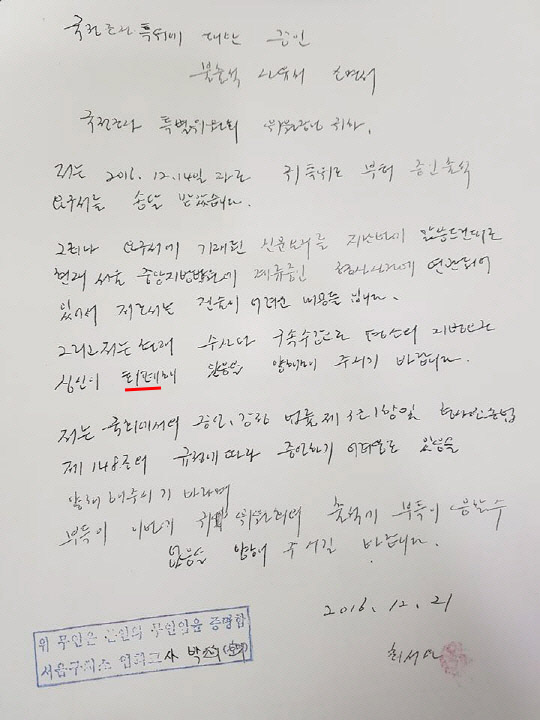 국정조사 특위에 대한 증인
불출석 사유서 소명서
국정조사 특별위원회 위원장님 귀하.
저는 2016. 12. 14일 귀 특위로 부터 증인출석
요구서를 송달 받았습니다.
그러나 요구서에 기재된 신문요지를
현재 서울 중앙지방법원에 계류중인 형사사건에 연관되어
있어서 저로서는 진술이 어려운 내용들 입니다.
그리고 저는 현재 수사와 구속수감으로 평소의 지병과
심신이 피폐해 있음을 양해해 주시기 바랍니다.
저는 국회에서의 증언, 감정 법률 제 3조 1항 및 형사소송법
제 148조의 규정에 따라 증언하기 어려움로 있음을
양해 해주시기 바라며
부득이 이번에 귀 위원회에 출석기 부득이 응할수
없음을 양해해 주시길 바랍니다.
2016. 12. 21
위 무인은 본인의 무인임을 증명함
서울구치소 교사 박
최서원